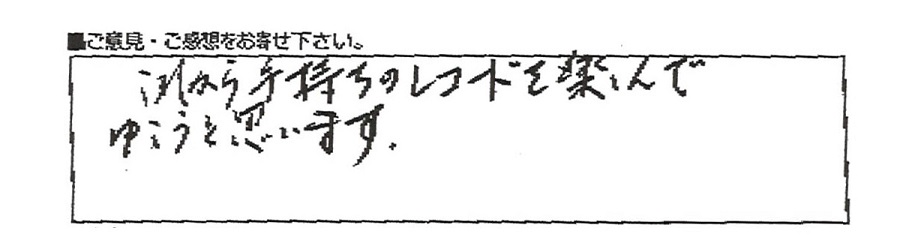 ■ご意見・ご感想をお寄せ下さい。
これから手持ちのレコードを楽しんで
ゆこうと思います.